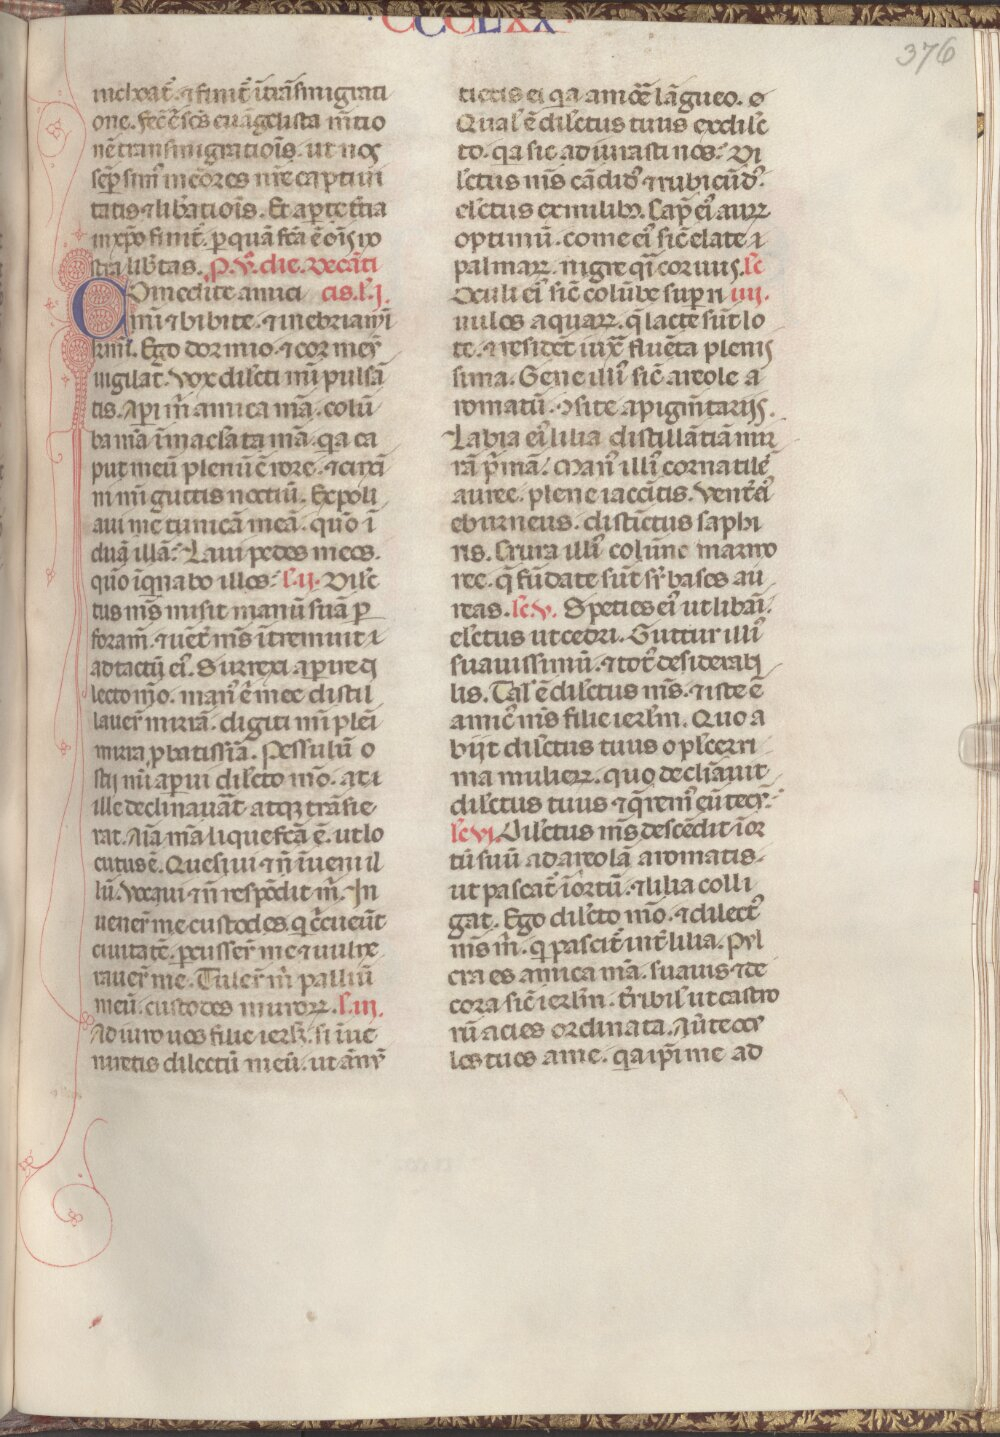 CCCCLXX
376
inchoat̄. ⁊ finit̄ ī trāsmigrati
one. fec̄ ē sc̄s euāgelista m̄tio
nē transmigratiōis. ut nos
sēp sim̄ mēores nr̄e captiui
tatis ⁊ lib̄atiōis. Et a p̄te t̄tia
in xp̄o finit̄. p quā fc̄a ē oīs no
str̄a lib̄tas. P. V. die. vecāti
Omedite amici cis. l̄. j.
mī ⁊ bibite. ⁊ inebriami
krmī. Ego dormio. ⁊ cor meū
uigilat̄. Vox dilc̄ti mī pulsā
tis. Api m̄ amica mā. colū
ba mā īmaclata mā. qa ca
put meū plenū ē rore. ⁊ cinci
ni mī guttis noctiū. Expoli
aui me tunicā meā. quō ī
duā illā: Laui pedes meos.
quō īqnabo illos: l̄. ij. Dilc̄
tus ms̄ misit manū suā p
foram̄. ⁊ uent̄ ms̄ ītremuit ī
ad tactū eī. Surrexi apire di
lecto mō. man̄ ē mee distil
lauer̄ mirrā. digiti mī plēi
mirra pbatissīa. Pessulū o
stij mī apui dilc̄to mō. at ī
ille declinauāt atqz trāsie
rat. Aīa mā liquefc̄a ē. ut lo
cutus ē. Quesiui ⁊ n̄ īueni il
lū. Vocaui ⁊ n̄ respōdit m̄. In
uener̄ me custodes q c̄cueūt
ciuitatē. pcusser̄ me ⁊ uulne
rauer̄ me. Tuler̄ m̄ palliū
meū. custodes muroꝝ. l̄. iij.
Adiuro uos filie ierl̄m. si īue
niretis dilectū meū. ut ānū
tietis ei qa amōē lāgueo. o
Qual̄ ē dilc̄tus tuus ex dilc̄
to. qa sic adiurasti nos: Di
lc̄tus ms̄ cādid̄ ⁊ rubicūd̄.
elc̄tus ex milib. Cap̄ eī auꝝ
optimū. come eī sic̄ elate ī
palmaꝝ. nigre qī coruus. lc̄
Oculi eī sic̄ colūbe sup ri iiij.
uulos aquaꝝ. q̄ lacte sūt lo
te. ⁊ resident̄ iux̄ fluēta plenis
sima. Gene illī sic̄ areole a
romatū. ꝯsite a pigm̄tarijs.
Labia eī lilia distillātia mir
rā p̄mā. Man̄ illī tornatile
auree. plene iacc̄tis. Vent̄ eī
eburneus. distīctus saphi
ris. Crura illī colūne marmo
ree. q̄ fūdate sūt sr̄ bases au
reas. lc̄. V. Speties eī ut libāi.
elc̄tus ut cedri. Guttur illī
suauissimū. ⁊ tot̄ desiderabi
lis. Tal̄ ē dilc̄tus ms̄. ⁊ iste ē
amic̄ ms̄ filie ierl̄m. Quo a
bijt dilc̄tus tuus o plc̄erri
ma mulieꝝ. quo declīauit
dilc̄tus tuus ⁊ q̄rem̄ eū tecū:
lc̄. vi. Dilc̄tus ms̄ descēdit ī or
tū suū ad areolā aromatis.
ut pascat̄ ī ortū. ⁊ lilia colli
gat. Ego dilc̄to mō. ⁊ dilect̄
ms̄ m̄. q pascit̄ int̄ lilia. Pul
cra es amica mā. suauis ⁊ de
cora sic̄ ierl̄m. t̄ribil̄ ut castro
rū acies ordinata. Aūte oc̄
los tuos a me. qa ipī me ad